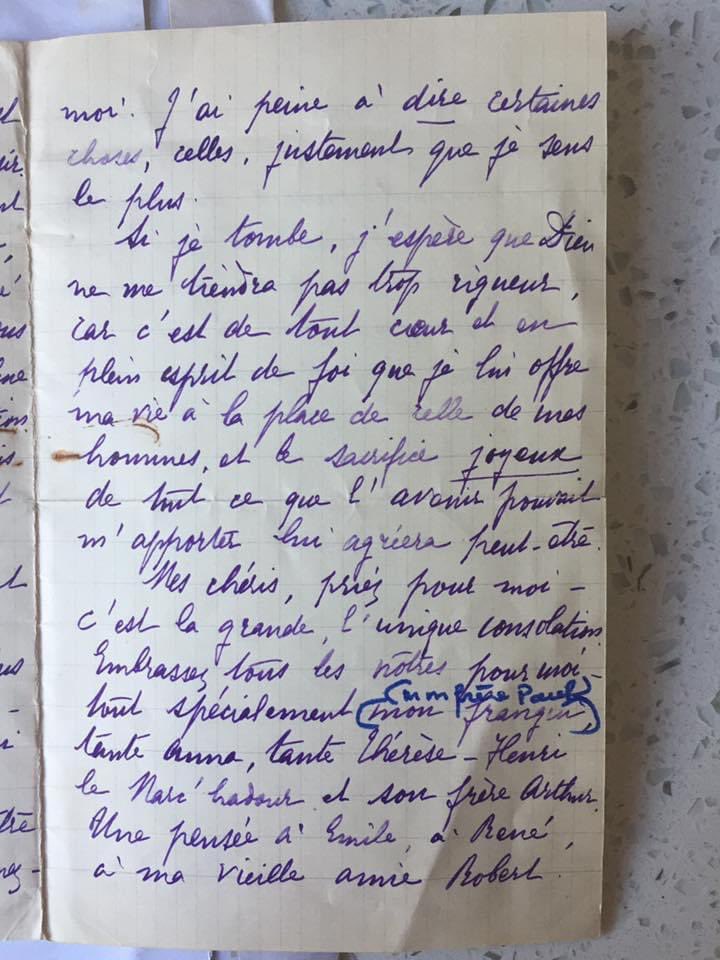 moi. J'ai peine à dire certaines
choses, celles, justement que je sens
le plus.
Si je tombe, j'espère que Dieu
ne me tiendra pas trop rigueur,
car c'est de tout cœur et en
plein esprit de foi que je lui offre
ma vie à la place de celle de mes
hommes, et le sacrifice joyeux
de tout ce que l'avenir pouvait
m'apporter lui agréera peut-être.
Mes chéris, priez pour moi -
c'est la grande, l'unique consolation.
Embrassez tous les nôtres pour moi -
(mon frère Paul)
tout spécialement (mon frangin),
tante Anna, tante Thérèse - Henri
le Marc'hadour et son frère Arthur.
Une pensée à Emile, à René,
à ma vieille amie Robert.